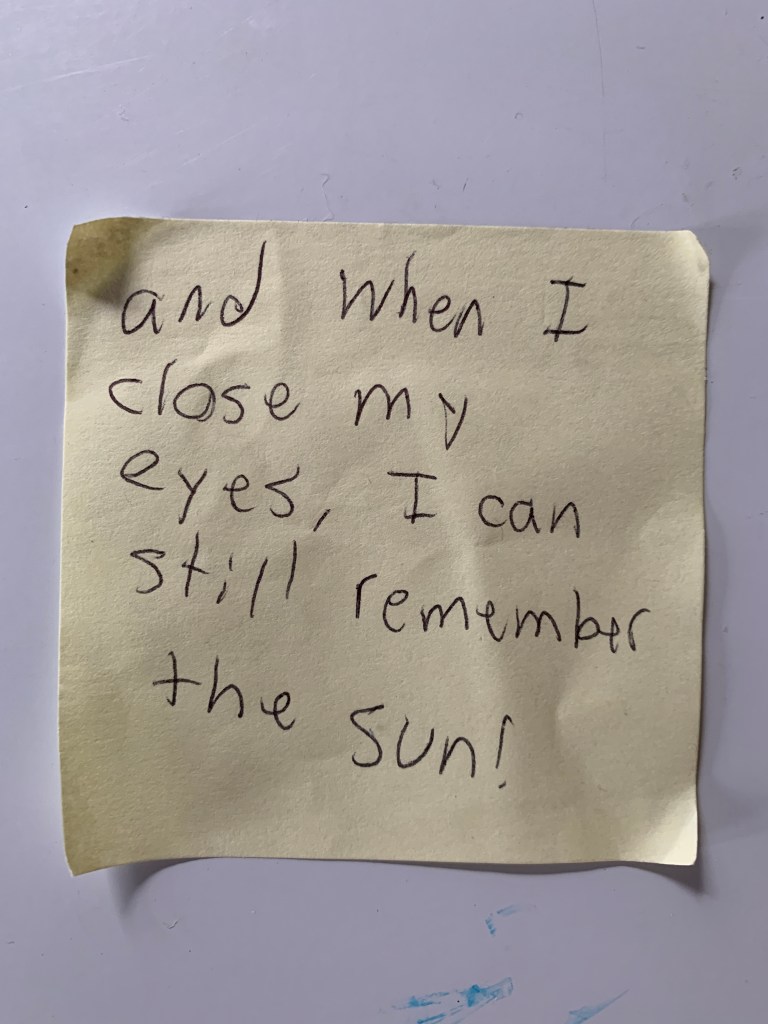 and when I
close my
eyes, I can
still remember
the sun!